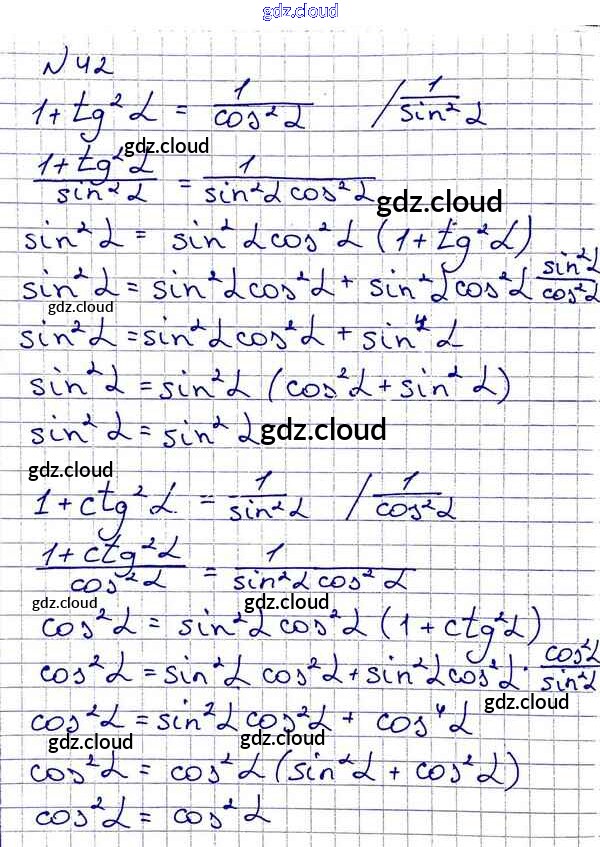 gdz.cloud
№42
1+tg² α = 1/cos² α /1/sin² α
gdz.cloud
(1+tg² α)/sin² α = 1/(sin² α cos² α)
gdz.cloud
sin² α = sin² α cos² α (1+tg² α)
sin² α = sin² α cos² α + sin² α cos² α sin² α/cos² α
gdz.cloud
sin² α = sin² α cos² α + sin⁴ α
sin² α = sin² α (cos² α + sin² α)
sin² α = sin² α
gdz.cloud
gdz.cloud
1+ctg² α = 1/sin² α /1/cos² α
(1+ctg² α)/cos² α = 1/(sin² α cos² α)
gdz.cloud gdz.cloud
cos² α = sin² α cos² α (1+ctg² α)
cos² α = sin² α cos² α + sin² α cos² α · cos² α/sin² α
gdz.cloud
cos² α = sin² α cos² α + cos⁴ α
gdz.cloud gdz.cloud
cos² α = cos² α (sin² α + cos² α)
cos² α = cos² α